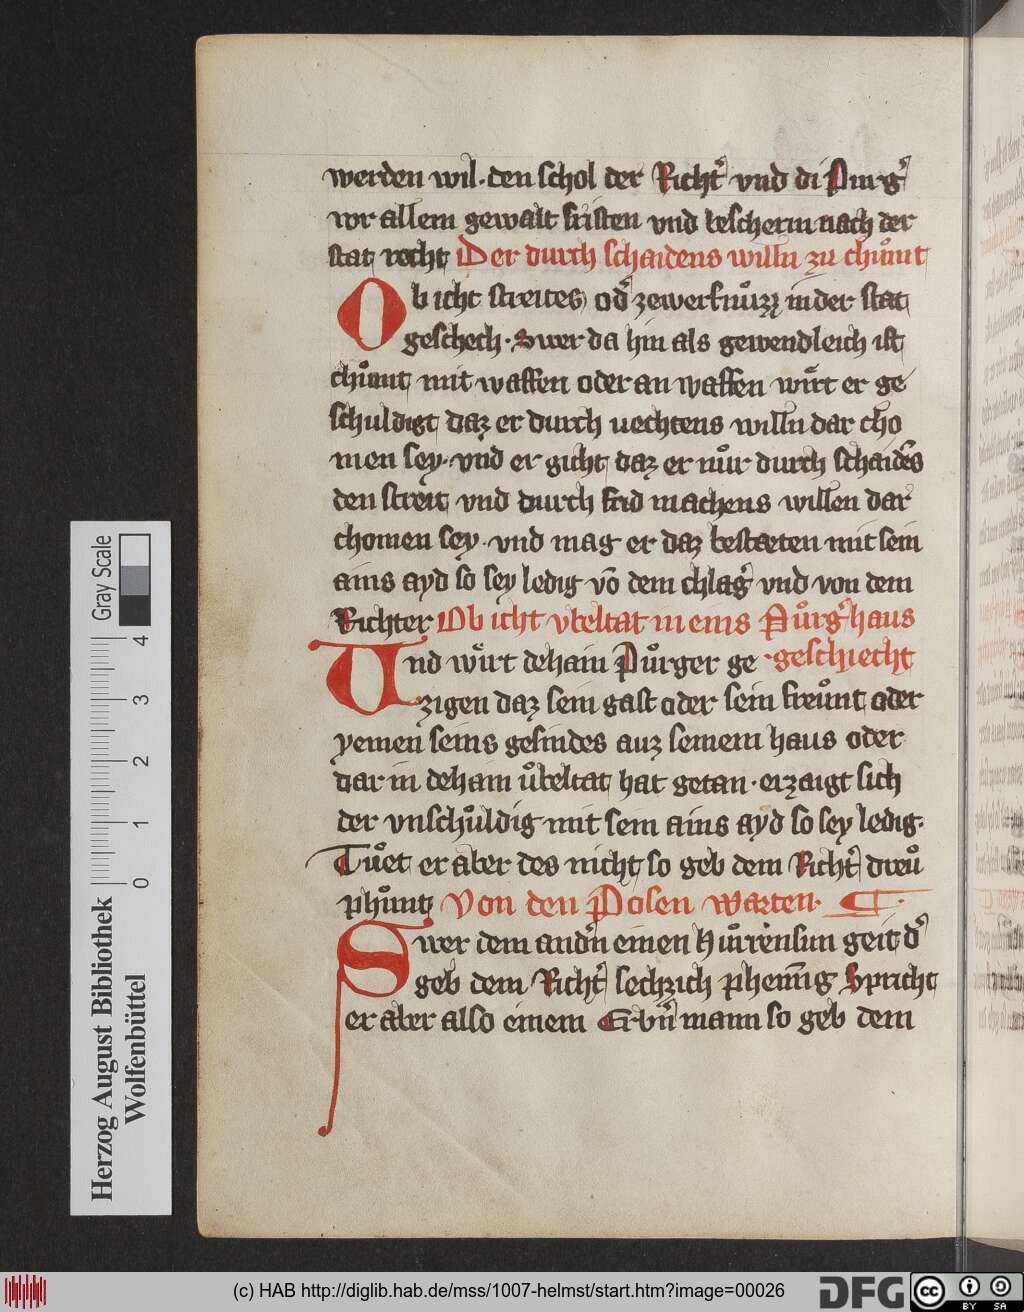 werden wil · den schol der Richt᷑ vnd di Purg᷑
vor allem gewalt fristen vnd bescherm nach der
stat recht Der durch schaidens willn zu chuͦmt
Ob icht streites od᷑ zewerfnuͦzz in der stat
geschech · Swer da hin als gewendleich ist
chuͦmt mit waffen oder an waffen wuͤrt er ge
schuldigt daz er durch uechtens willn dar cho
men sey · vnd er gicht daz er nuͦr durch schaid᷑s
den streit vnd durch frid machens willen dar
chomen sey · vnd mag er daz bestæten mit sein
ains ayd so sey ledig vō dem chlag᷑ vnd von dem
Richter Ob icht vbeltat in eins Puͦrg᷑ haus
Und wuͤrt dehain Puͦrger ge · geschiecht
zigen daz sein gast oder sein freuͦnt oder
yemen seins gesindes auz seinem haus oder
dar in dehain uͦbeltat hat getan · erzaigt sich
der vnschuͦldig mit sein ains ayd so sey ledig ·
Tuͦet er aber des nicht so geb dem Richt᷑ dreuͦ
phuͦnt Von den Posen warten ·
Swer dem and᷑n einen Huͦrensun geit d᷑
geb dem Richt᷑ sechzich phenīg Spricht
er aber also einem Erbn᷑ mann so geb dem
Gray Scale
0 1 2 3 4
Herzog August Bibliothek
Wolfenbüttel
(c) HAB http://diglib.hab.de/mss/1007-helmst/start.htm?image=00026
DFG
cc
BY SA